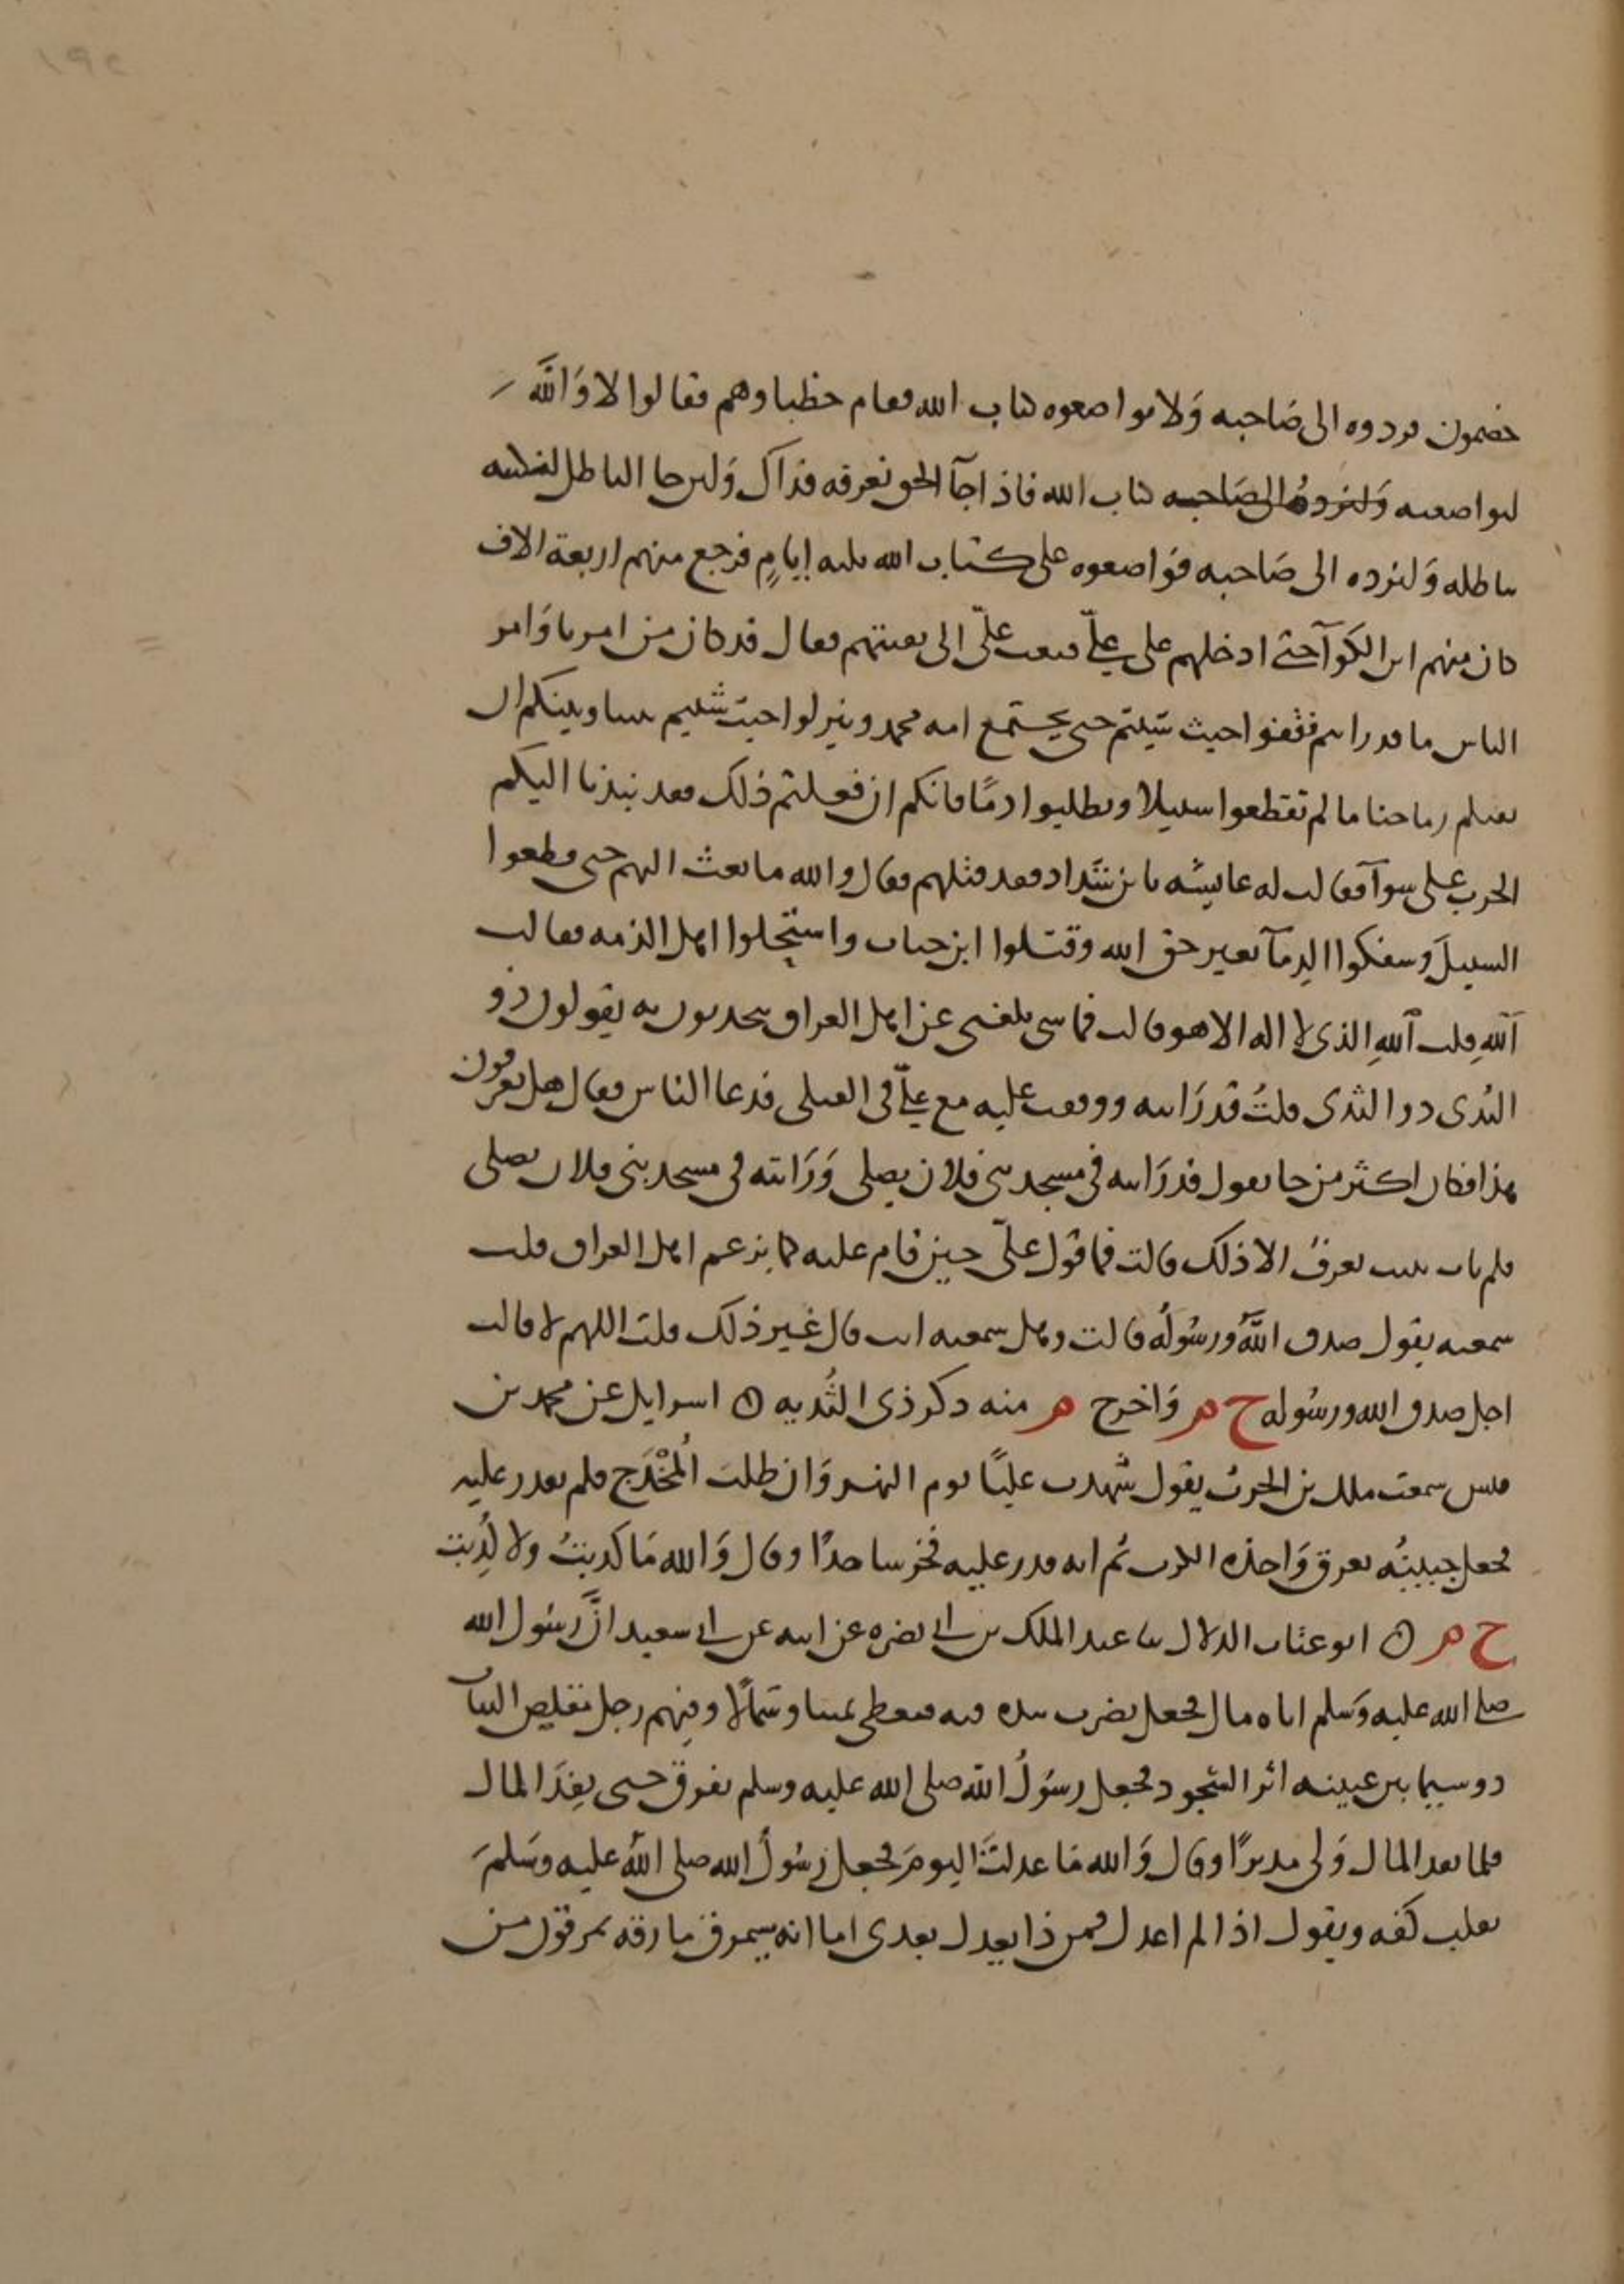 ١٩٢
خصمون فردوه الى صَاحبه وَلا تواضعوه كتاب الله فقام خطباوهم فقالوا لا وَاللَّه
لنواضعنه وَلنردوهُ الى صَاحبه كتاب الله فاذا جآ الحق نعرفه فذاك وَلىن جا الباطل لنبكتنه
بباطله وَلنرده الى صَاحبه فواضعوه على كتاب الله ثلثه ايامٍ فرجع منهم اربعة الاف
كان منهم ابن الكوآ حتى ادخلهم على عليّ فبعث عليّ الى بقيتهم فقال قد كان من امرنا وَامر
الناس ما قد رايتم فقفوا حيث شيتم حتى يجتمع امه محمد وينزلوا حيث شيتم بيننا وبينكم ان
نقيكم رماحنا ما لم تقطعوا سبيلا وتطلبوا دمًا فانكم ان فعلتم ذلك فقد نبذنا اليكم
الحرب على سوآ فقالت له عايشه يا بن شدّاد فقد قتلهم فقال والله ما بعث اليهم حتى قطعوا
السبيلَ وسفكوا الدِمآ بغير حق الله وقتلوا ابن خباب واستحلوا اهل الذمه فقالت
آللهِ قلت آللهِ الذى لا اله الا هو قالت فما شى بلغنى عن اهل العراق يتحدثون به يقولون ذو
الثدى ذو الثدى قلتُ قد رَايته ووقفت عليه مع عليّ فى القتلى فدعا الناس فقال هل تعرفون
هذا فكان اكثر من جا يقول قد رَايته فى مسجد بنى فلان يصلى وَرَايته فى مسجد بنى فلان يصلى
فلم يات بثبت يعرفُ الا ذلك قالت فما قول عليّ حين قام عليه كما يزعم اهل العراق قلت
سمعته يقول صدق اللَّهُ ورسُولُه قالت وهل سمعته انت قال غير ذلك قلت اللهم لا قالت
اجل صدق الله ورسُوله ح م وَاخرج م منه ذكر ذى الثُديه ۞ اسرايل عن محمد بن
قيس سمعت ملك بن الحرث يقول شهدت عليًا يوم النهروَان طلبَ المُخْدَج فلم يقدر عليه
فجعل جبينُه يعرق وَاخذه الكرب ثم انه قدر عليه فخر ساجدًا وقال وَالله مَا كذبتُ ولا كُذِبت
ح م ۞ ابو عتاب الدلال ثنا عبد الملك بن ابى نضره عن ابيه عن ابى سعيد انَّ رسُول الله
صلى الله عليه وَسلم اتاه مال فجعل يضرب بيده فيه فيعطى يمينا وشمالًا وفيهم رجل مقلص الثياب
ذو سيما بين عينيه اثر السُّجود فجعل رسُولُ الله صلى الله عليه وسلم يفرق حتى نفِدَ المال
فلما نفد المال وَلى مدبرًا وقال وَالله مَا عدلتَ اليومَ فجعل رسُولُ الله صلى اللهُ عليه وسَلمَ
يقلب كفه ويقول اذا لم اعدل فمن ذا يعدل بعدى اما انه سيمرق مارقه يمرقون من